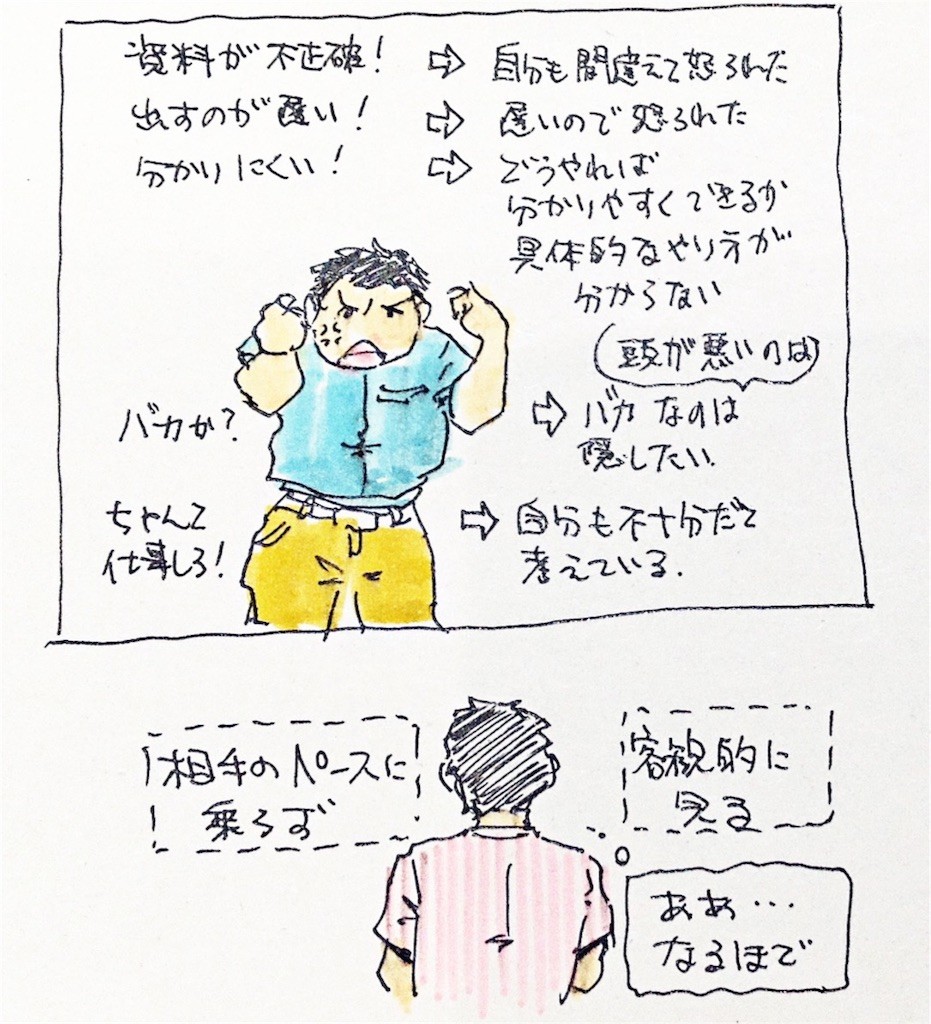 資料が不正確！ ⇨ 自分も間違えて怒られた
出すのが遅い！ ⇨ 遅いので怒られた
分かりにくい！ ⇨ どうやれば
分かりやすくできるか
具体的なやり方が
分からない
（頭が悪いのは）
バカか？ ⇨ バカなのは
隠したい.
ちゃんと
仕事しろ！ ⇨ 自分も不十分だと
考えている.
相手のペースに
乗らず
客観的に
見る
ああ…
なるほど